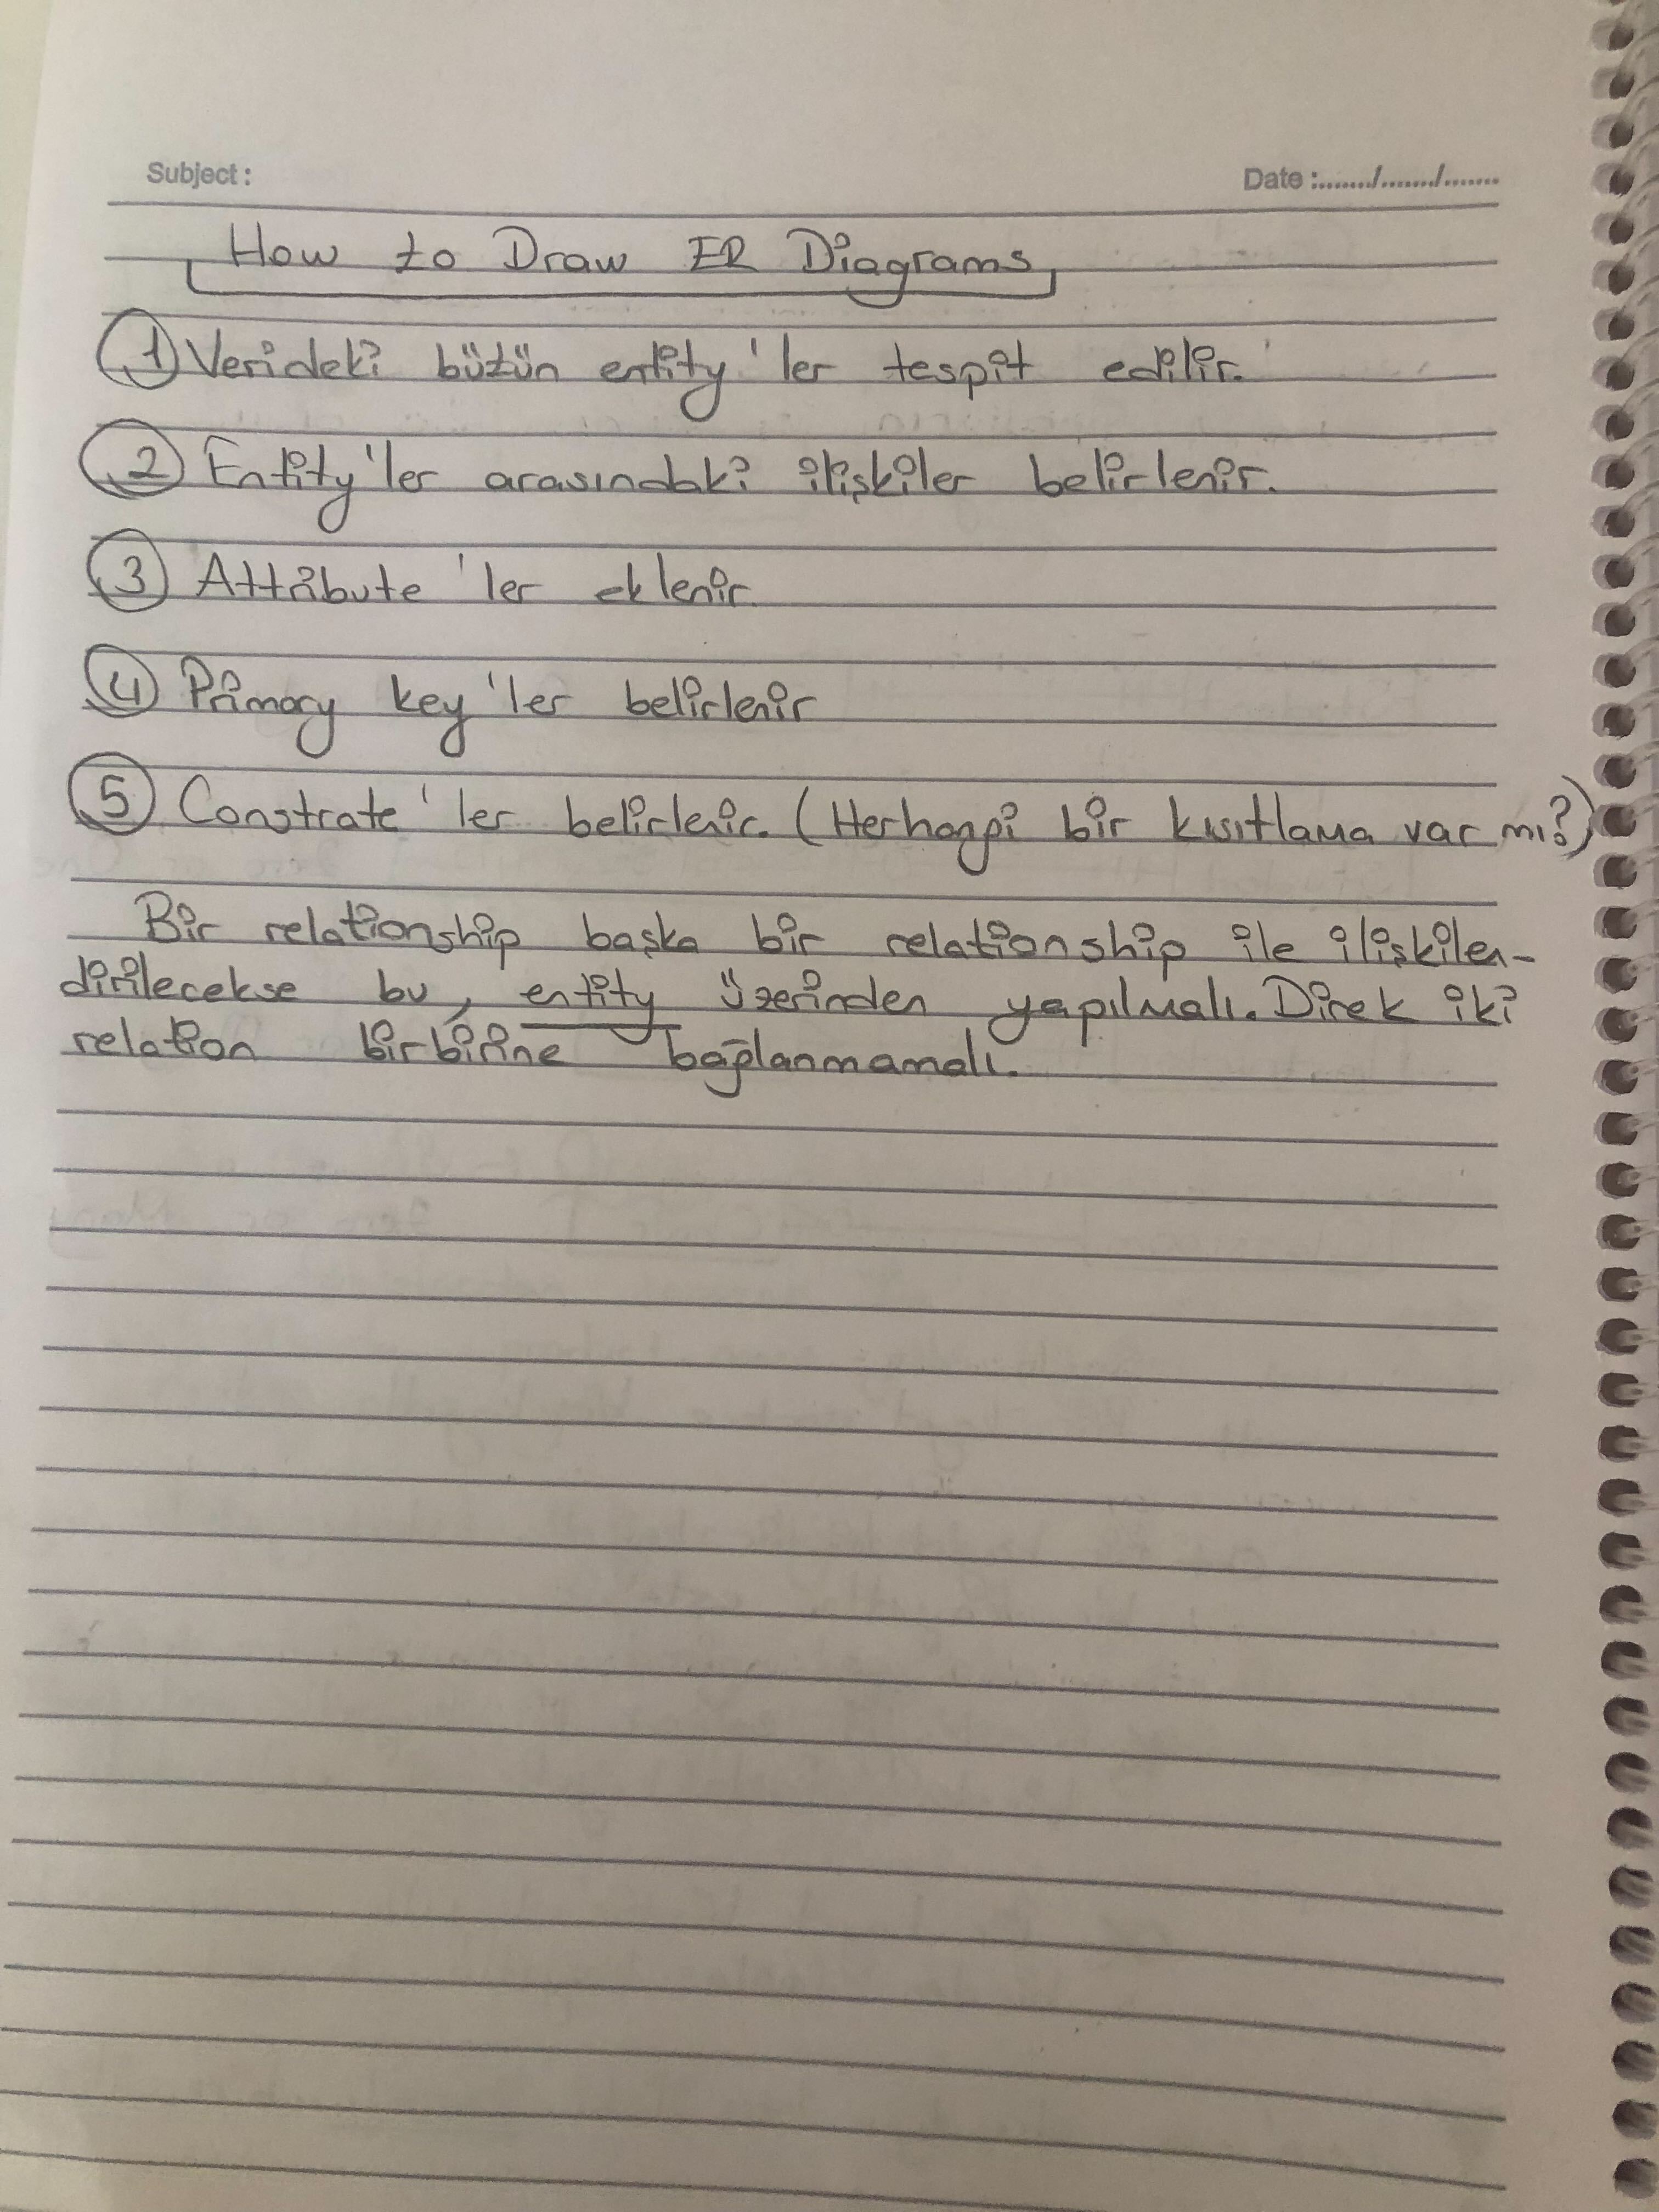 Subject :
Date :......./......./.......
How to Draw ER Diagrams
1 Verideki bütün entity'ler tespit edilir.
2 Entity'ler arasındaki ilişkiler belirlenir.
3 Attribute'ler eklenir
4 Primary key'ler belirlenir
5 Constrate'ler belirlenir. (Herhangi bir kısıtlama var mı?)
Bir relationship başka bir relationship ile ilişkilen-
dirilecekse bu, entity üzerinden yapılmalı. Direk iki
relation birbirine bağlanmamalı.